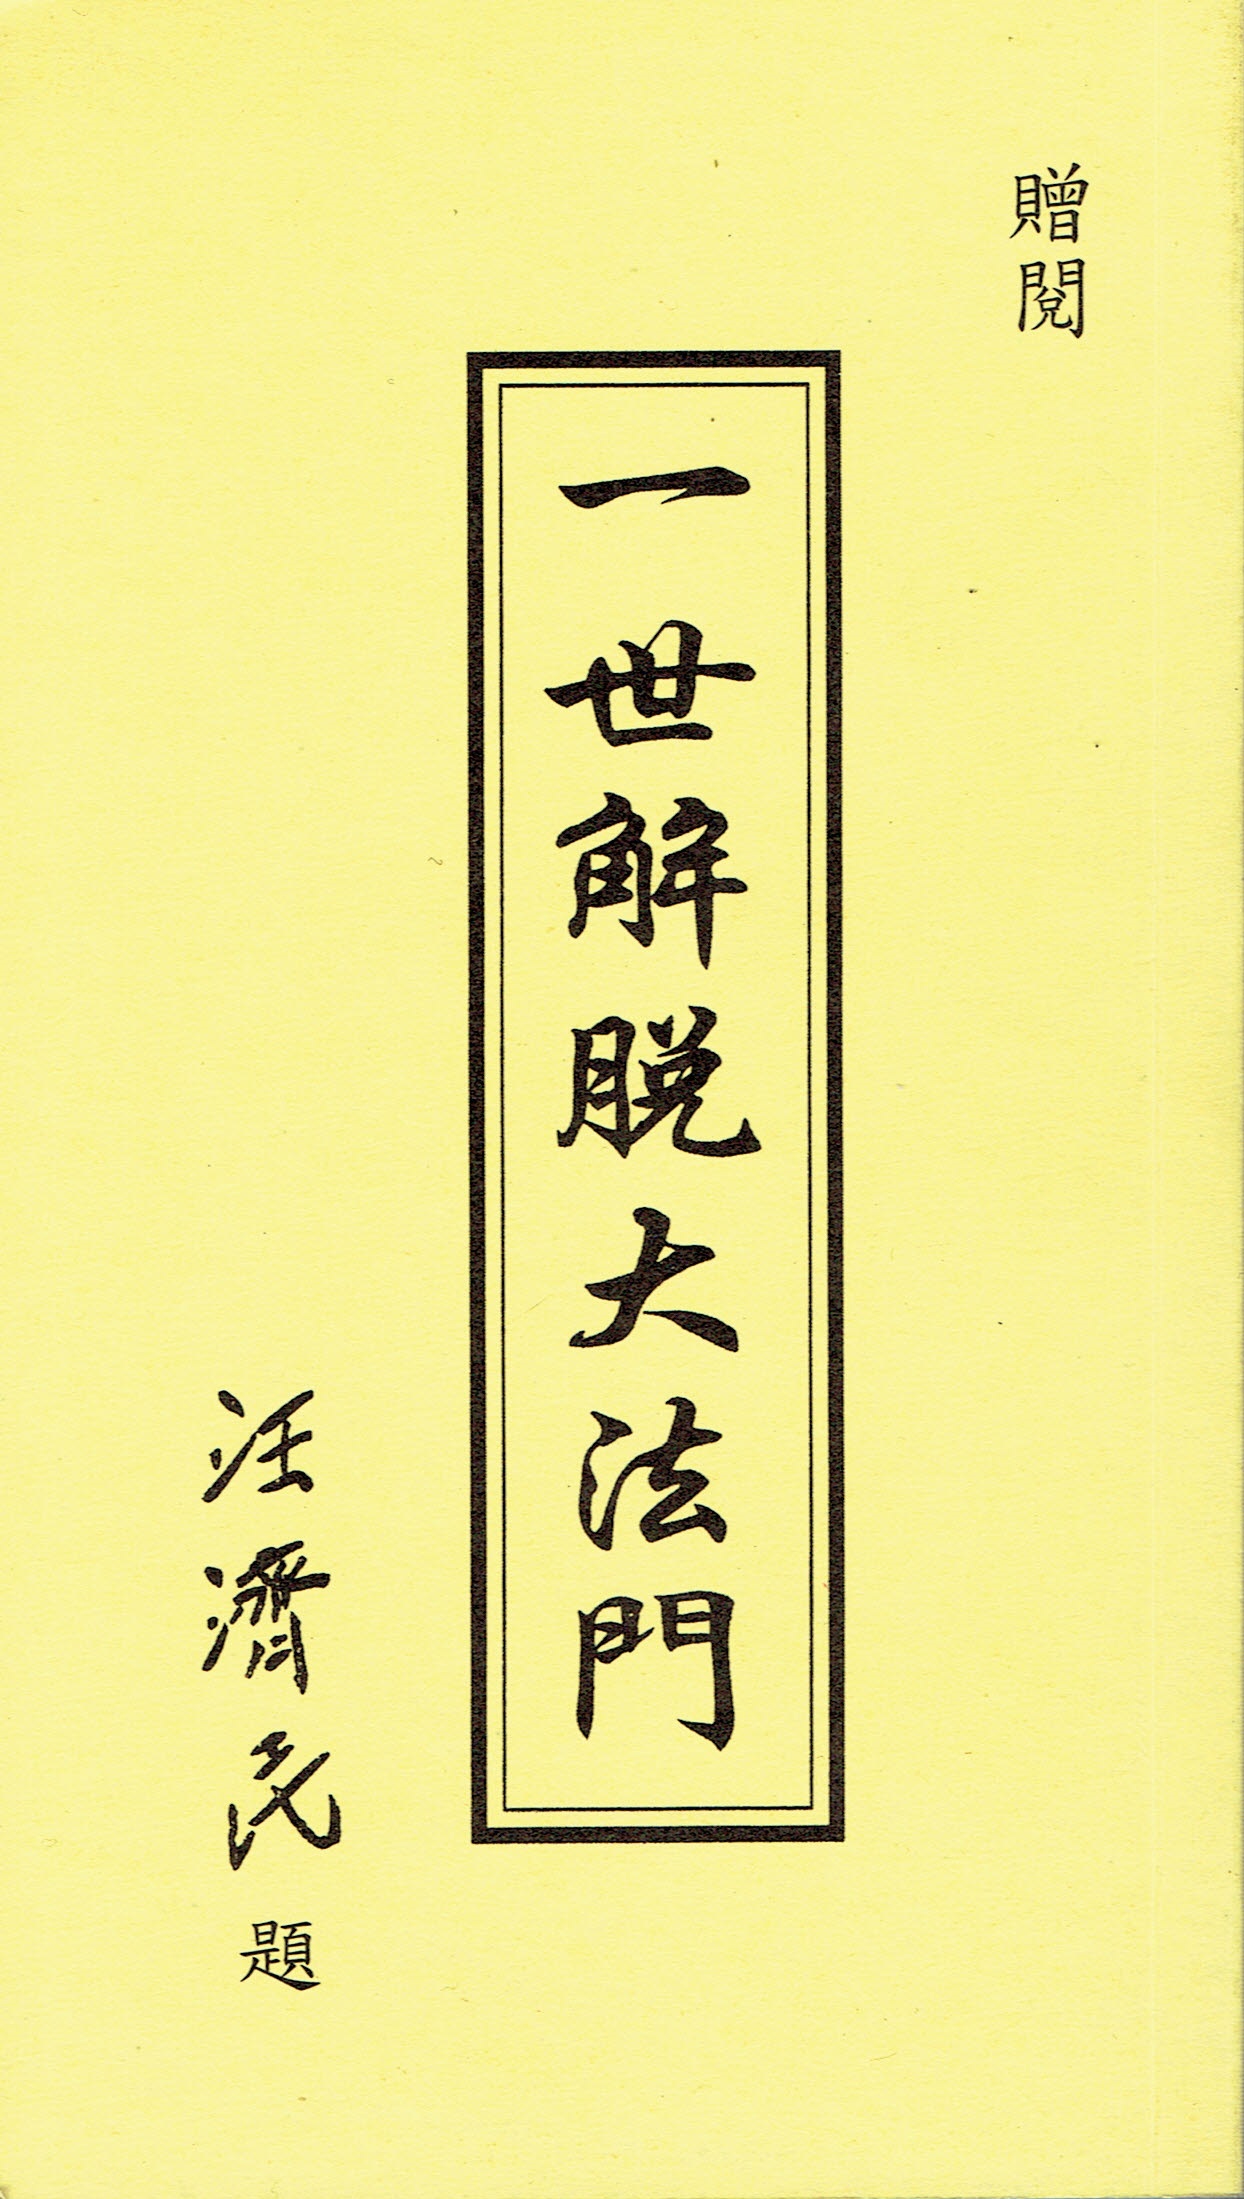 贈閱
一世解脫大法門
汪濟民題